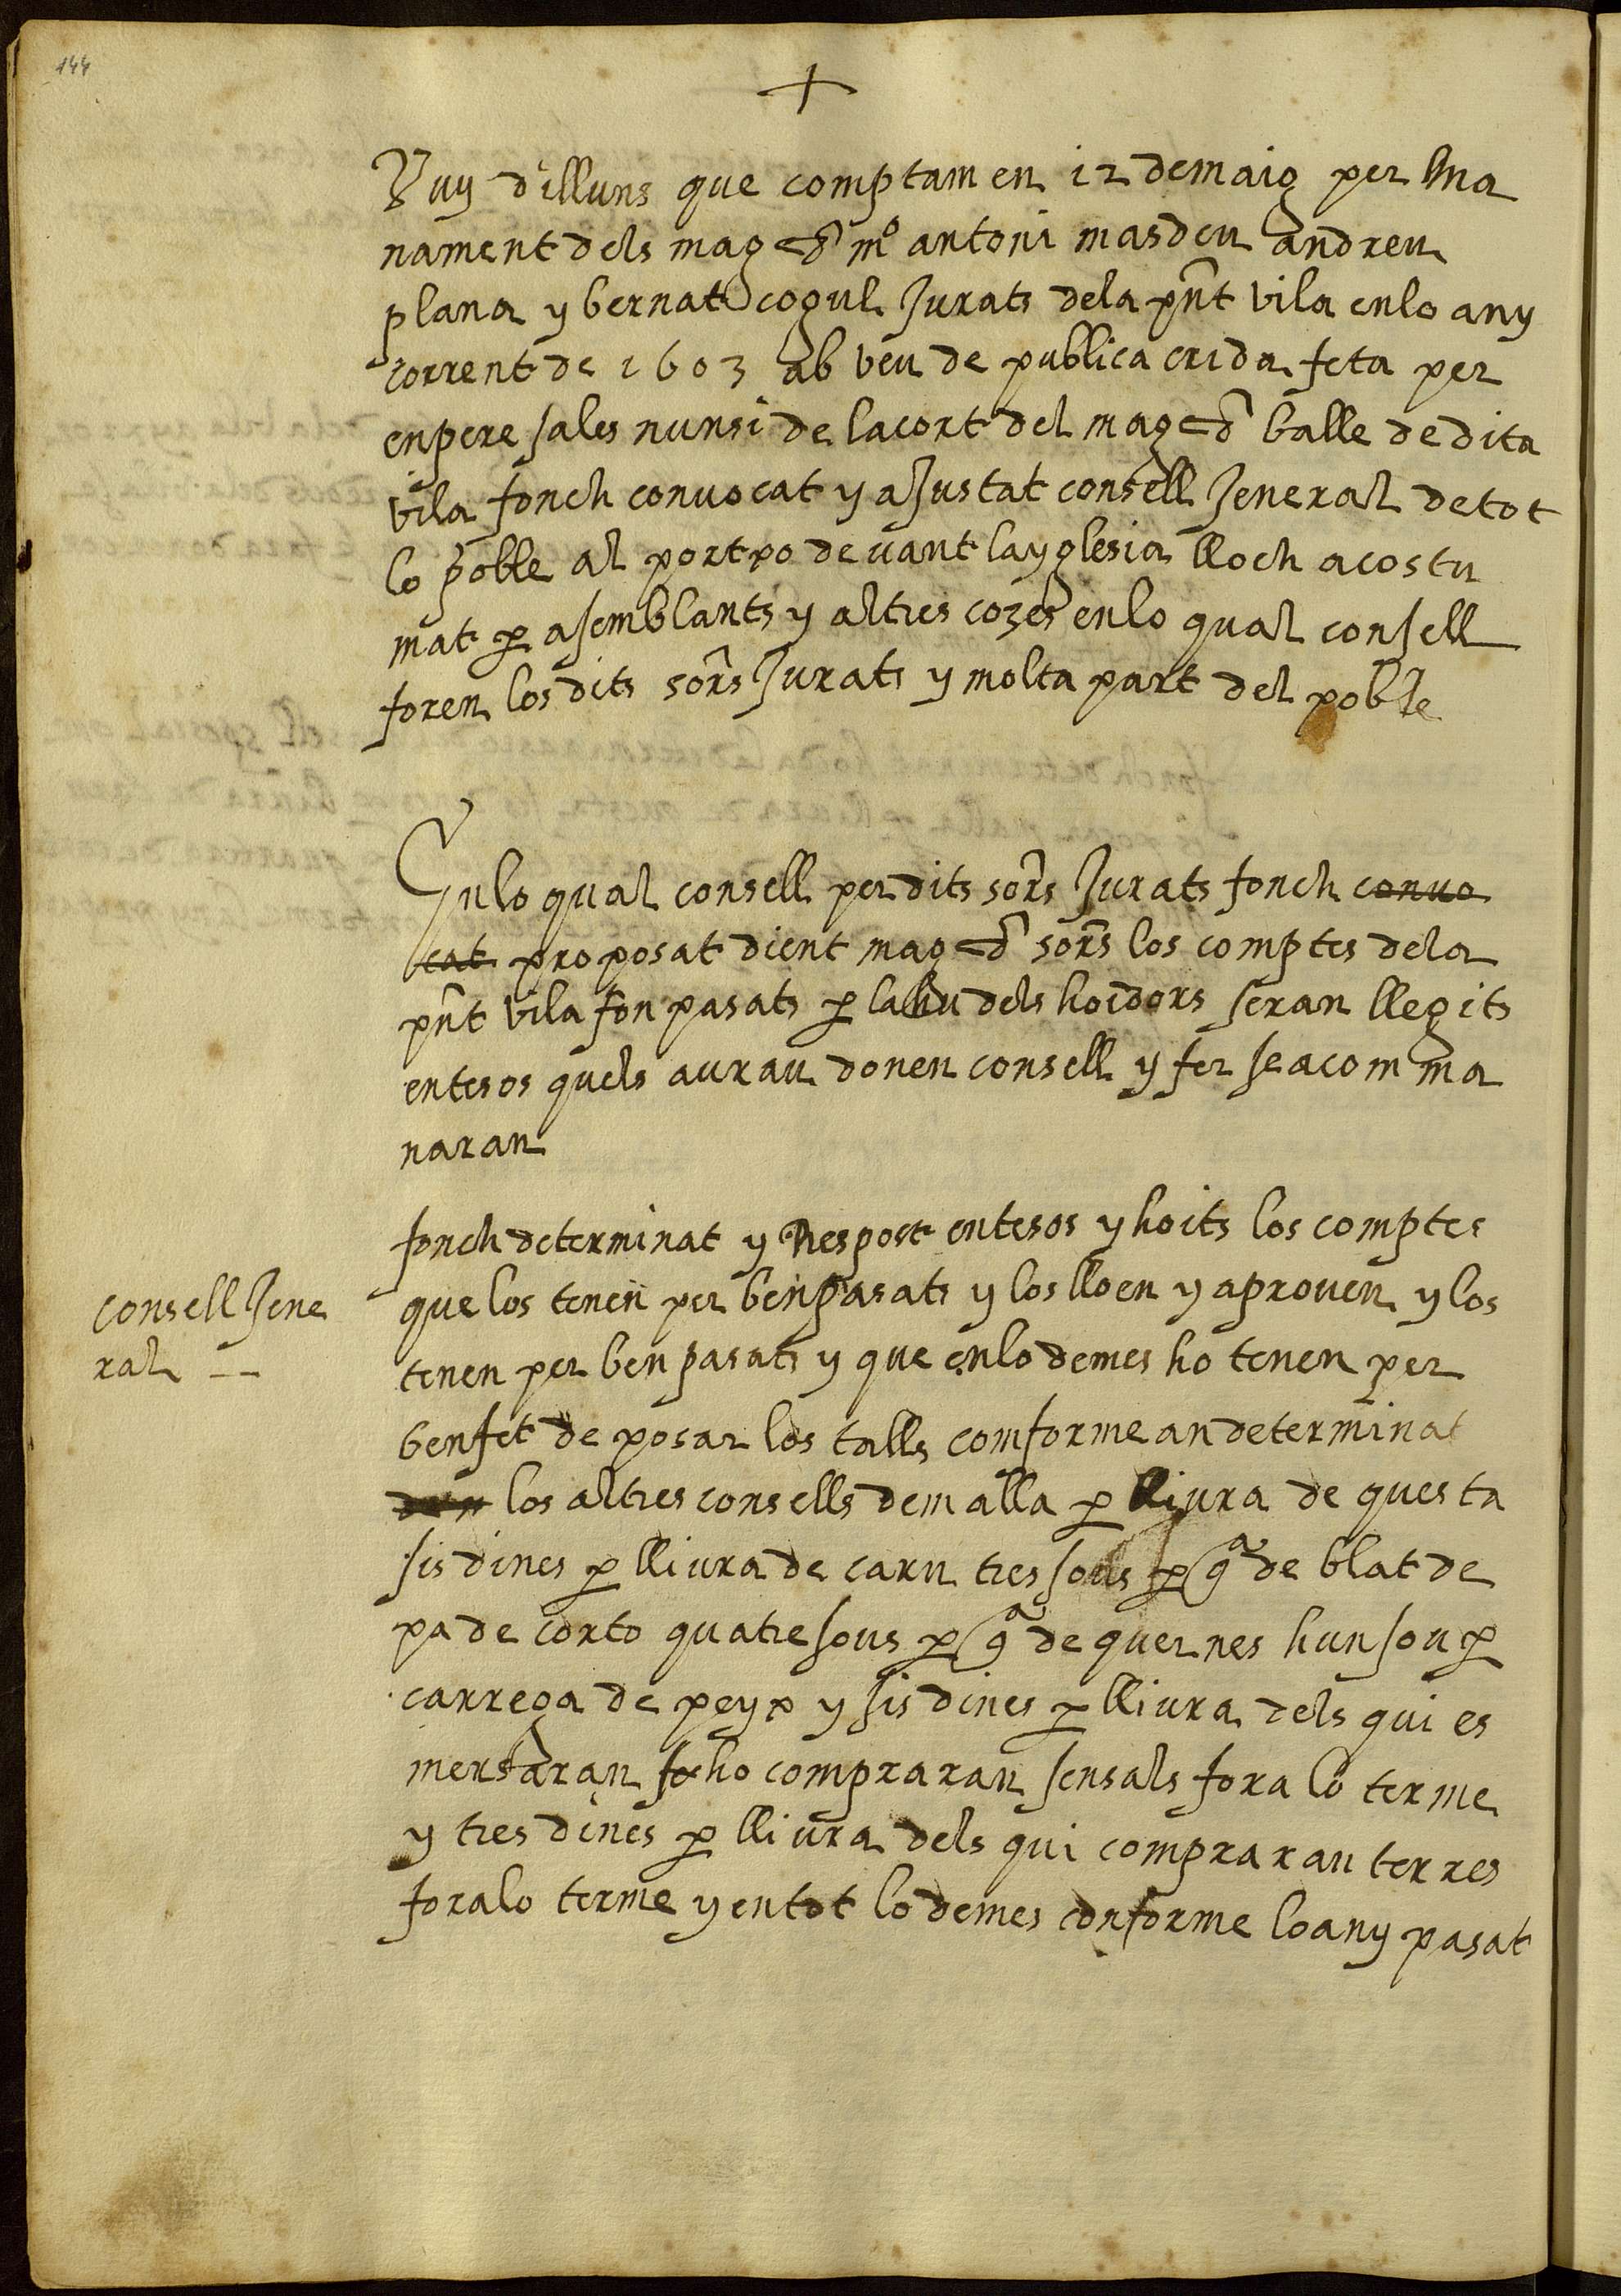 144
+
Vuy dilluns que comptam en 12 de maig per ma
nament dels mag.chs mº antoni masdeu andreu
plana y bernat cogul Jurats dela pñt vila enlo any
corrent de 1603 ab veu de publica crida feta per
enpere sales nunsi de lacort del mag.ch balle de dita
vila fonch convocat y aJustat consell Jeneral detot
lo poble al portxo devant layglesia lloch acostu
mat p asemblants y altres cozes enlo qual consell
foren los dits sors Jurats y molta part del poble
Enlo qual consell per dits sors Jurats fonch convo
cat proposat dient mag.chs sors los comptes dela
pñt vila fon pasats p la hu dels hoidors seran llegits
entesos quels aurau donen consell y fer se a com ma
naran
fonch determinat y Respost entesos y hoits los comptes
que los tenen per ben pasats y los lloen y aproven y los
consell Jene
ral --
tenen per ben pasats y que enlo demes ho tenen per
benfet de posar los talls comforme an determinat
los altres consells de malla p lliura de questa
sis dines p lliura de carn tres sous p qª de blat de
pa de corto quatre sous p qª de quernes hun sou p
carrega de peyx y sis dines p lliura dels qui es
mersaran ho compraran sensals fora lo terme
y tres dines p lliura dels qui compraran terres
foralo terme y entot lo demes conforme loany pasat